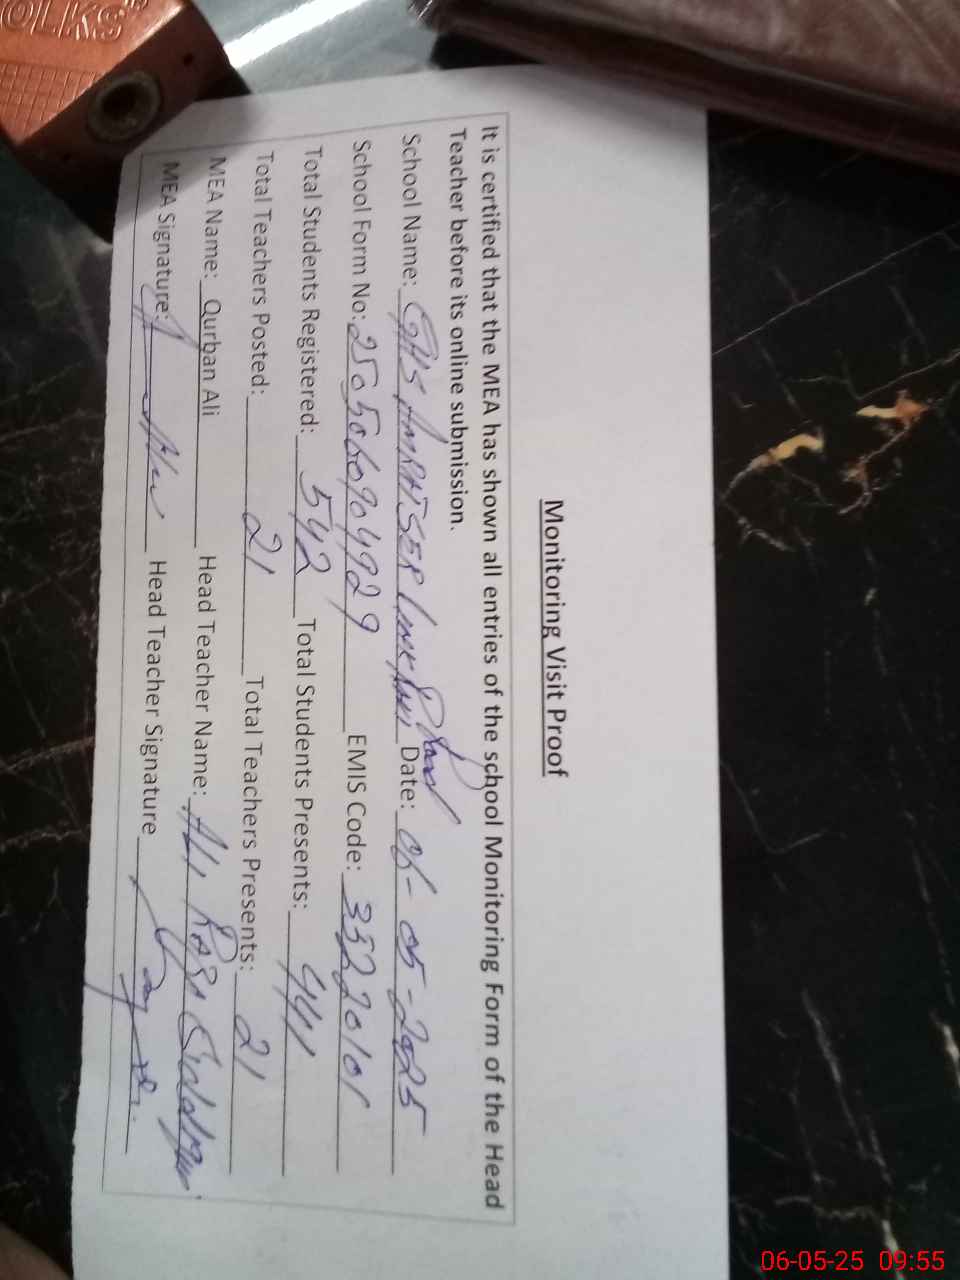 OLKS
Monitoring Visit Proof
It is certified that the MEA has shown all entries of the school Monitoring Form of the Head
Teacher before its online submission.
School Name: GHS AMRATSER Date: 06-05-2025
School Form No: 2505060904929 EMIS Code: 35220101
Total Students Registered: 542 Total Students Presents: 441
Total Teachers Posted: 21 Total Teachers Presents: 21
MEA Name: Qurban Ali Head Teacher Name: Ali Raza
MEA Signature: Head Teacher Signature
06-05-25 09:55